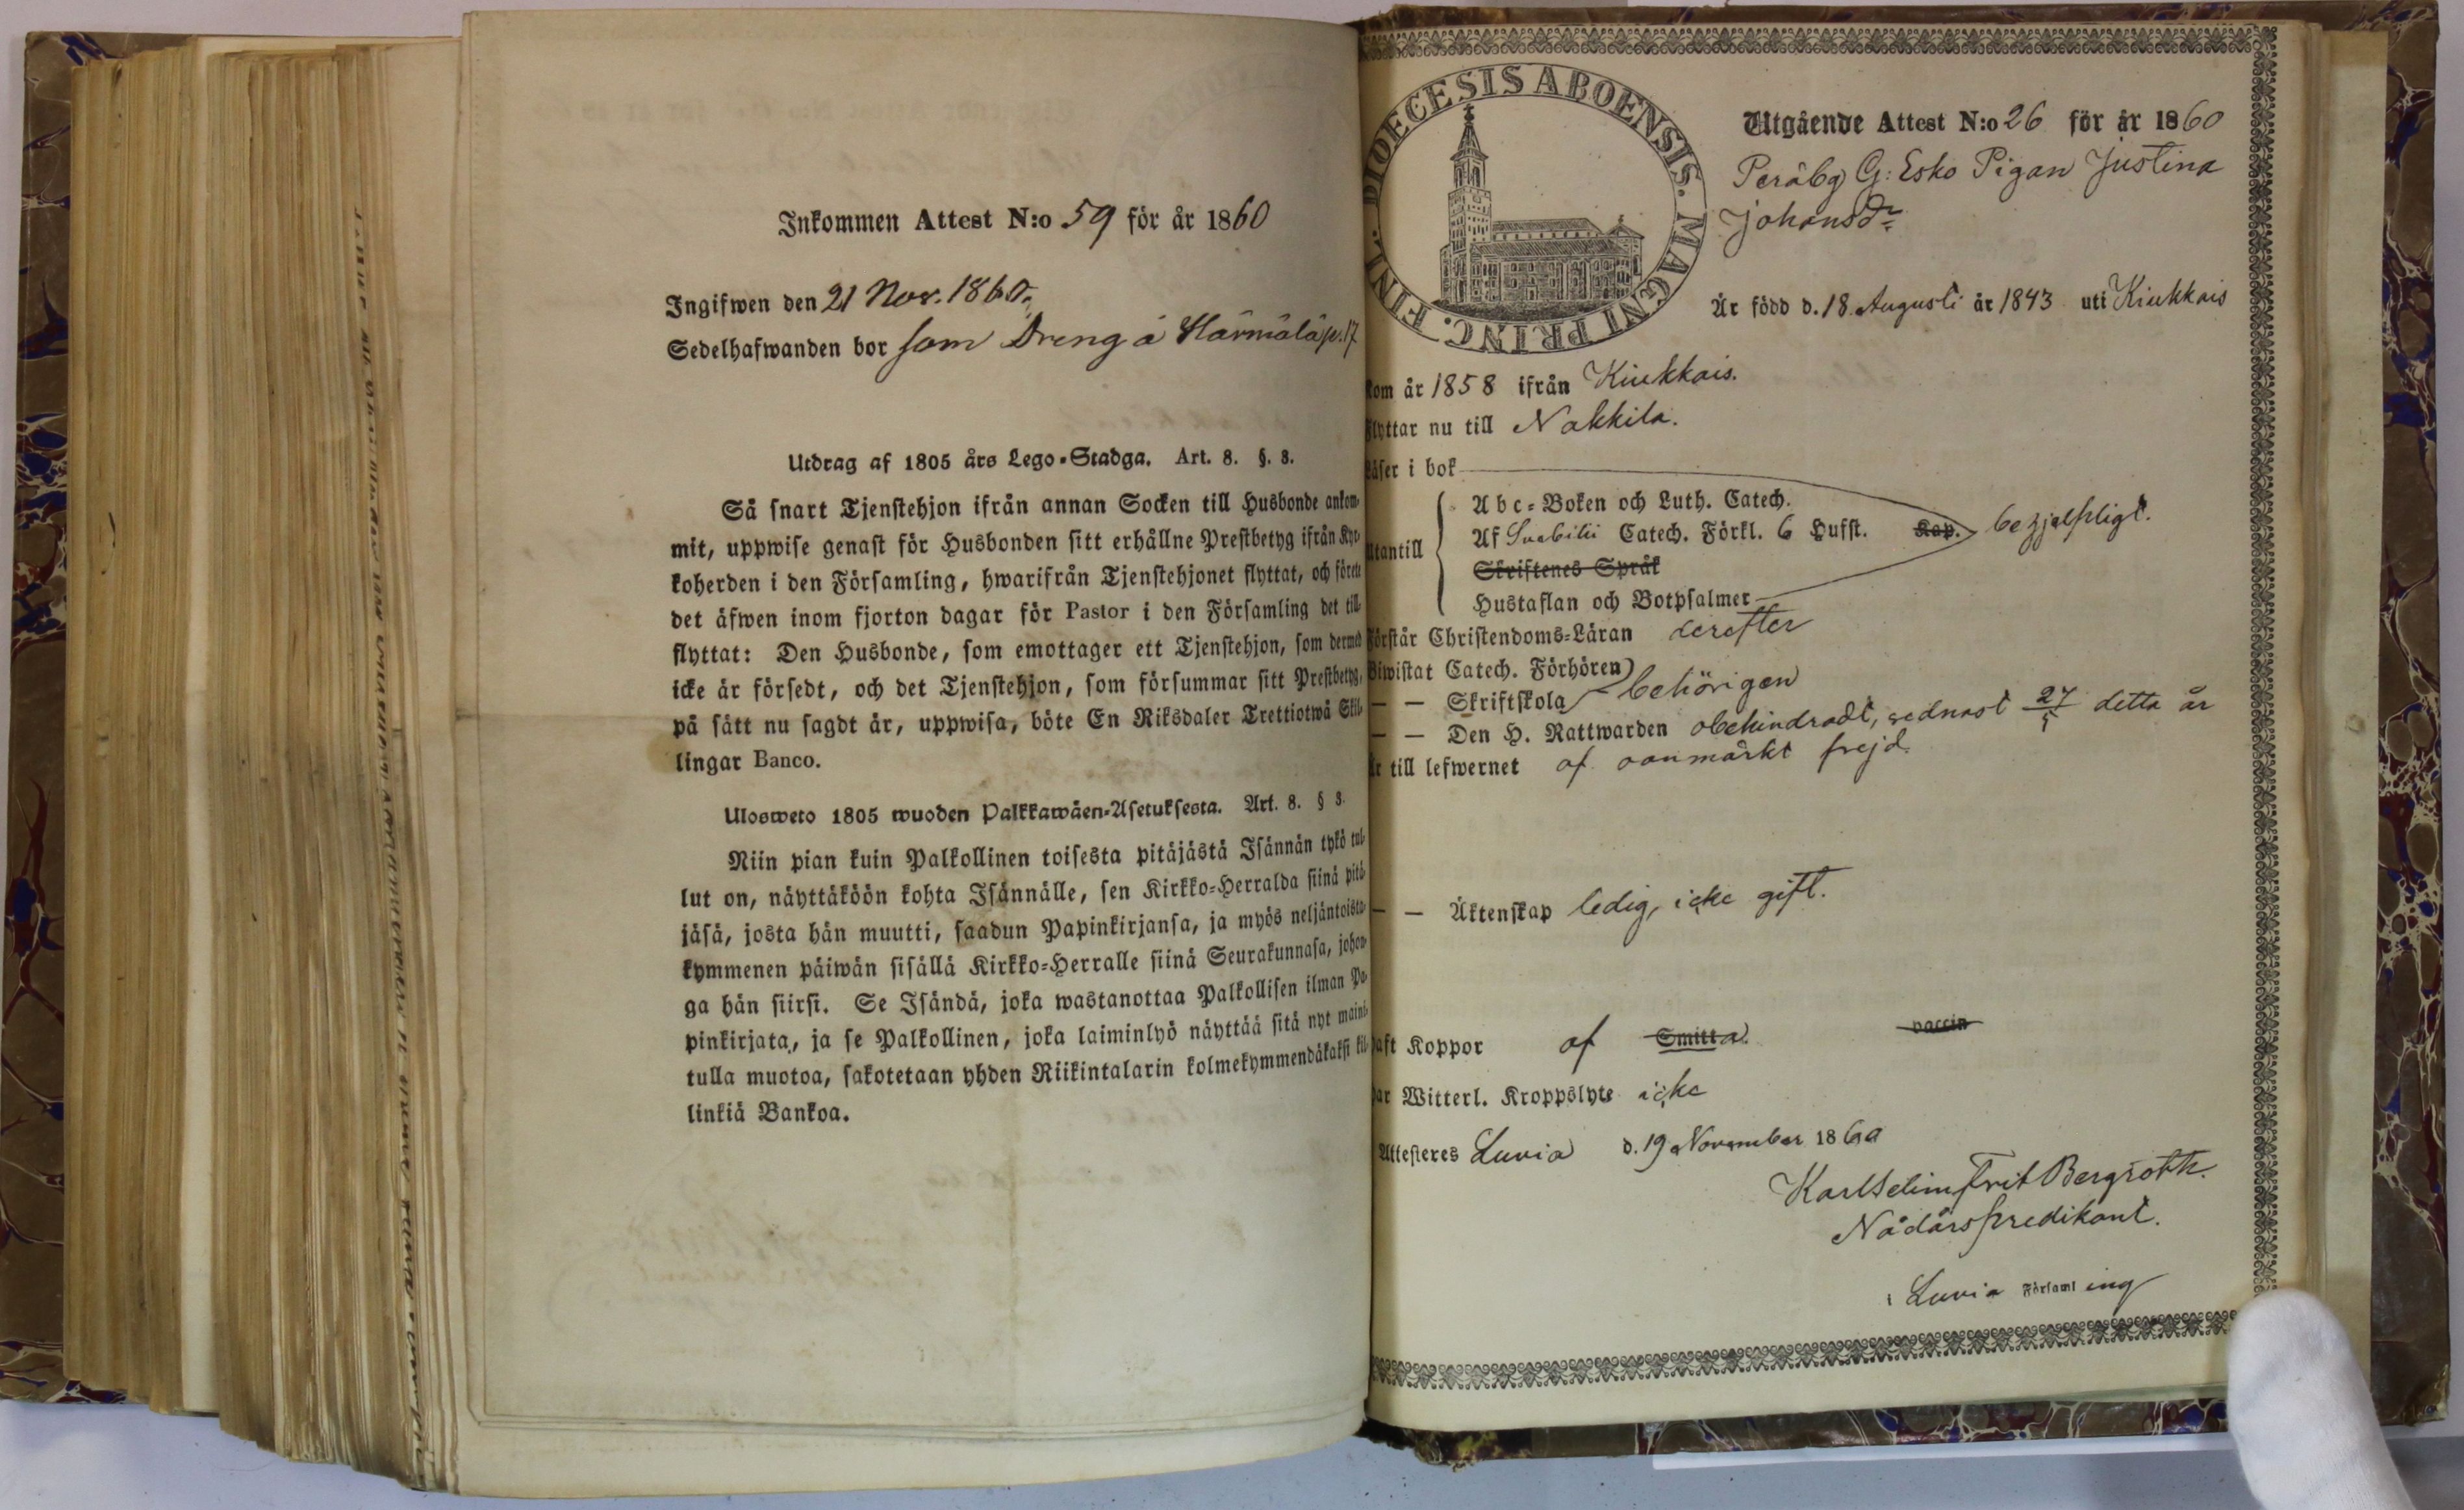 Inkommen Attest N:o 59 för år 1860
Ingifwen den 21 Nov. 1860.
Sedelhafwanden bor som Dreng å Härmälä p. 17
Utdrag af 1805 års Lego-Stadga. Art. 8. §. 8.
Så snart Tjenstehjon ifrån annan Socken till Husbonde ankom-
mit, uppwise genast för Husbonden sitt erhållne Prestbetyg ifrån Kyr-
koherden i den Församling, hwarifrån Tjenstehjonet flyttat, och förete
det äfwen inom fjorton dagar för Pastor i den Församling det till-
flyttat: Den Husbonde, som emottager ett Tjenstehjon, som dermed
icke är försedt, och det Tjenstehjon, som försummar sitt Prestbetyg,
på sätt nu sagdt är, uppwisa, böte En Riksdaler Trettiotwå Skil-
lingar Banco.
Ulosweto 1805 wuoden Palkkawäen-Asetuksesta. Art. 8. § 8.
Niin pian kuin Palkollinen toisesta pitäjästä Isännän tykö tul-
lut on, näyttäköön kohta Isännälle, sen Kirkko-Herralda siinä pitä-
jäsä, josta hän muutti, saadun Papinkirjansa, ja myös neljäntoista-
kymmenen päiwän sisällä Kirkko-Herralle siinä Seurakunnasa, johon-
ga hän siirsi. Se Isändä, joka wastanottaa Palkollisen ilman Pa-
pinkirjata, ja se Palkollinen, joka laiminlyö näyttää sitä nyt maini-
tulla muotoa, sakotetaan yhden Riikintalarin kolmekymmendäkaksi kil-
linkiä Bankoa.
DIOECESIS ABOENSIS. MAGNI PRINC. FINL.
Utgående Attest N:o 26 för år 1860
Peräbg G: Esko Pigan Justina
Johansdr
Är född d. 18 Augusti år 1843 uti Kiukkais
kom år 1858 ifrån Kiukkais.
flyttar nu till Nakkila.
Läser i bok
Abc-Boken och Luth. Catech.
Utantill Af Svebilii Catech. Förkl. 6 Hufst. Kap. behjelpligt.
Skriftenes Språk
Hustaflan och Botpsalmer
Förstår Christendoms-Läran derefter
Biwistat Catech. Förhören
— — Skriftskola behörigen
— — Den H. Nattwarden obehindradt, sednast 27/5 detta år
Är till lefwernet af oanmärkt frejd.
— — Äktenskap ledig, icke gift.
Haft Koppor af Smitta vaccin
Har Witterl. Kroppslyte icke
Attesteres Luvia d. 19 November 1860
Karl Selim Frit Bergroth.
Nådårspredikant.
i Luvia Församling